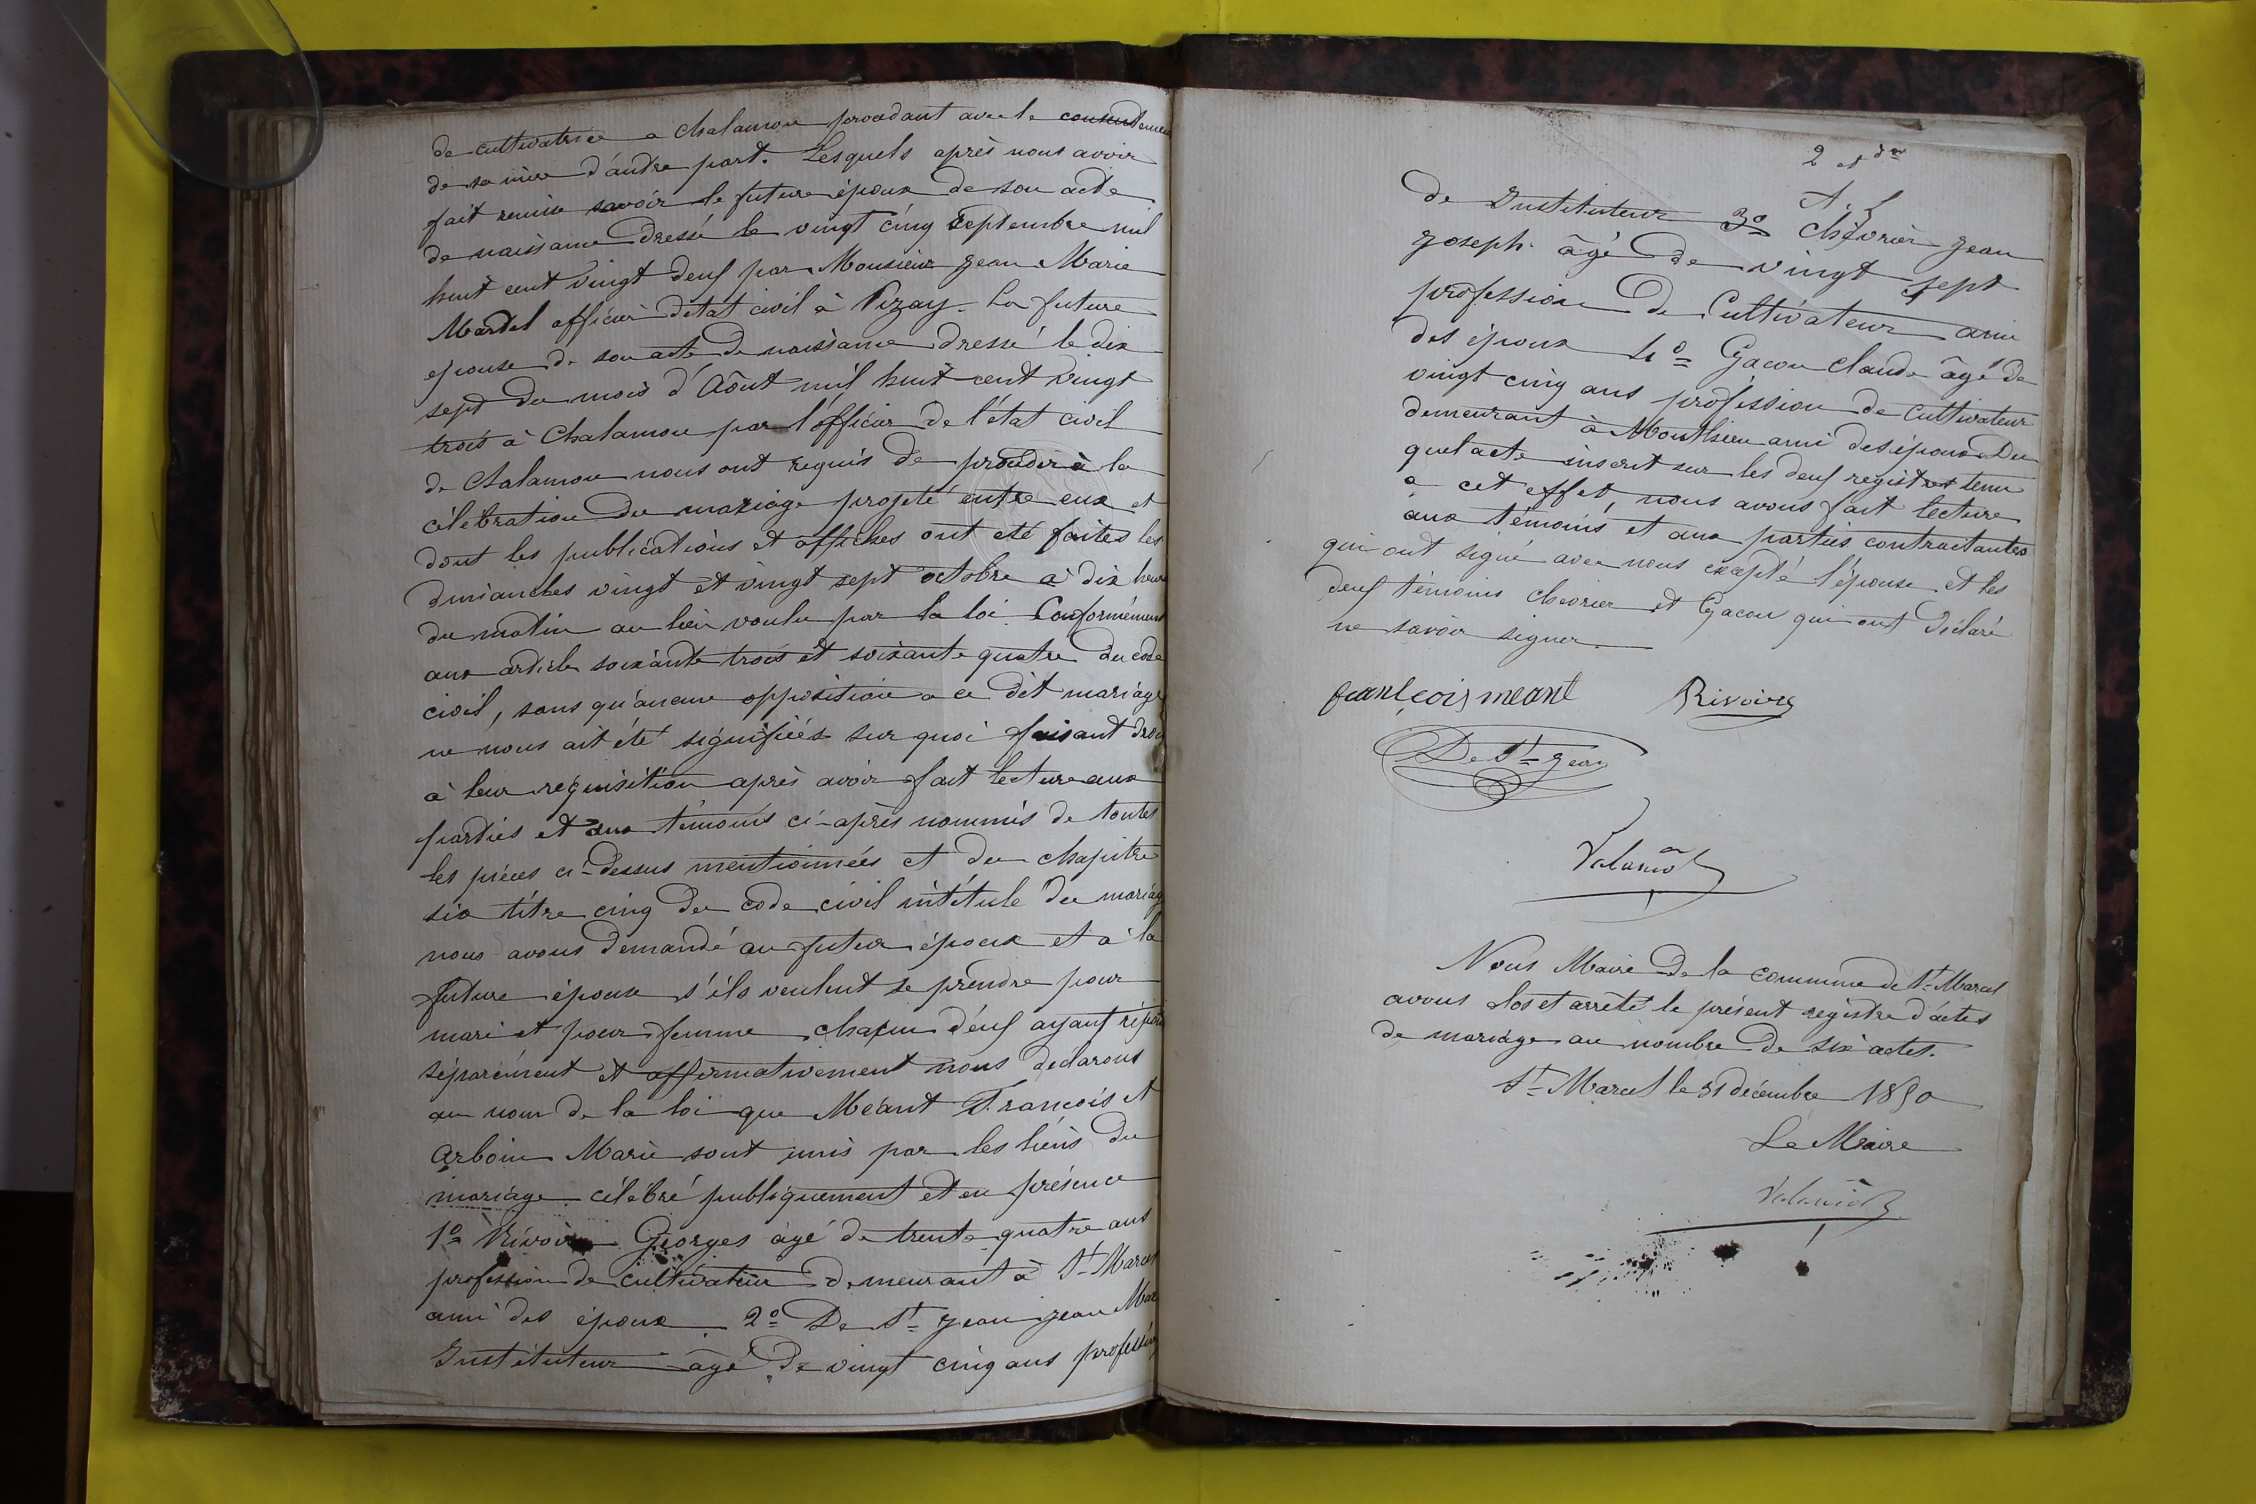 de cultivatrice a chalamon procedant avec le consentement
de sa mère d'autre part. Lesquels après nous avoir
fait remise savoir le future époux de son acte
de naissance dressé le vingt cinq septembre mil
huit cent vingt deuf par Monsieur jean Marie
officier d'état civil à Pizay. La future
epouse de son acte de naissance dressé le dix
sept du mois d'Aôut mil huit cent vingt
trois à Chalamon par l'officier de l'état civil
de Chalamon nous ont requis de proceder à la
célébration du mariage projeté entre eux et
dont les publications et affiches ont eté faites les
dimanches vingt et vingt sept octobre à dix heure
du matin au lieu voulu par la loi Conformément
aux article soixante trois et soixante quatre du code
civil, sans qu'aucune opposition a ce dit mariage
ne nous ait été signifiées sur quoi faisant droit
à leur réquisition après avoir fait lecture aux
parties et aux témoins ci-après nommés de toutes
les pièces ci-dessus mentionnées et du chapitre
six titre cinq du code civil intitulé du mariage
nous avons demandé au futur époux et à la
future épouse s'ils veulent se prendre pour
mari et pour femme chacun d'eux ayant répondu
séparément et affirmativement nous déclarons
au nom de la loi que Méant François et
arboin Marie sont unis par les liens du
mariage célébré publiquement et en présence
1º Rivoire Georges âgé de trente quatre ans
profession de cultivateur demeurant à St Marcel
ami des époux. 2º De St jean jean Marie
Instituteur âgé de vingt cinq ans profession
2 et d
de Instituteur 3º Chévrier jean
joseph âgé de vingt sept
profession de Cultivateur ami
des époux 4º Gacon Claude âgé de
vingt cinq ans profession de cultivateur
demeurant à Monthieu ami des époux Du
quel acte inscrit sur les deuf registres tenu
a cet effet, nous avons fait lecture
aux témoins et aux parties contractantes
qui ont signé avec nous excepté l'épouse et les
deuf témoins chevrier et Gacon qui ont déclaré
ne savoir signer.
françois meant Rivoire
De St jean
Nous Maire de la commune de St Marcel
avons clos et arrêté le présent registre d'actes
de mariage au nombre de six actes.
St Marcel le 31 décembre 1850
Le Maire